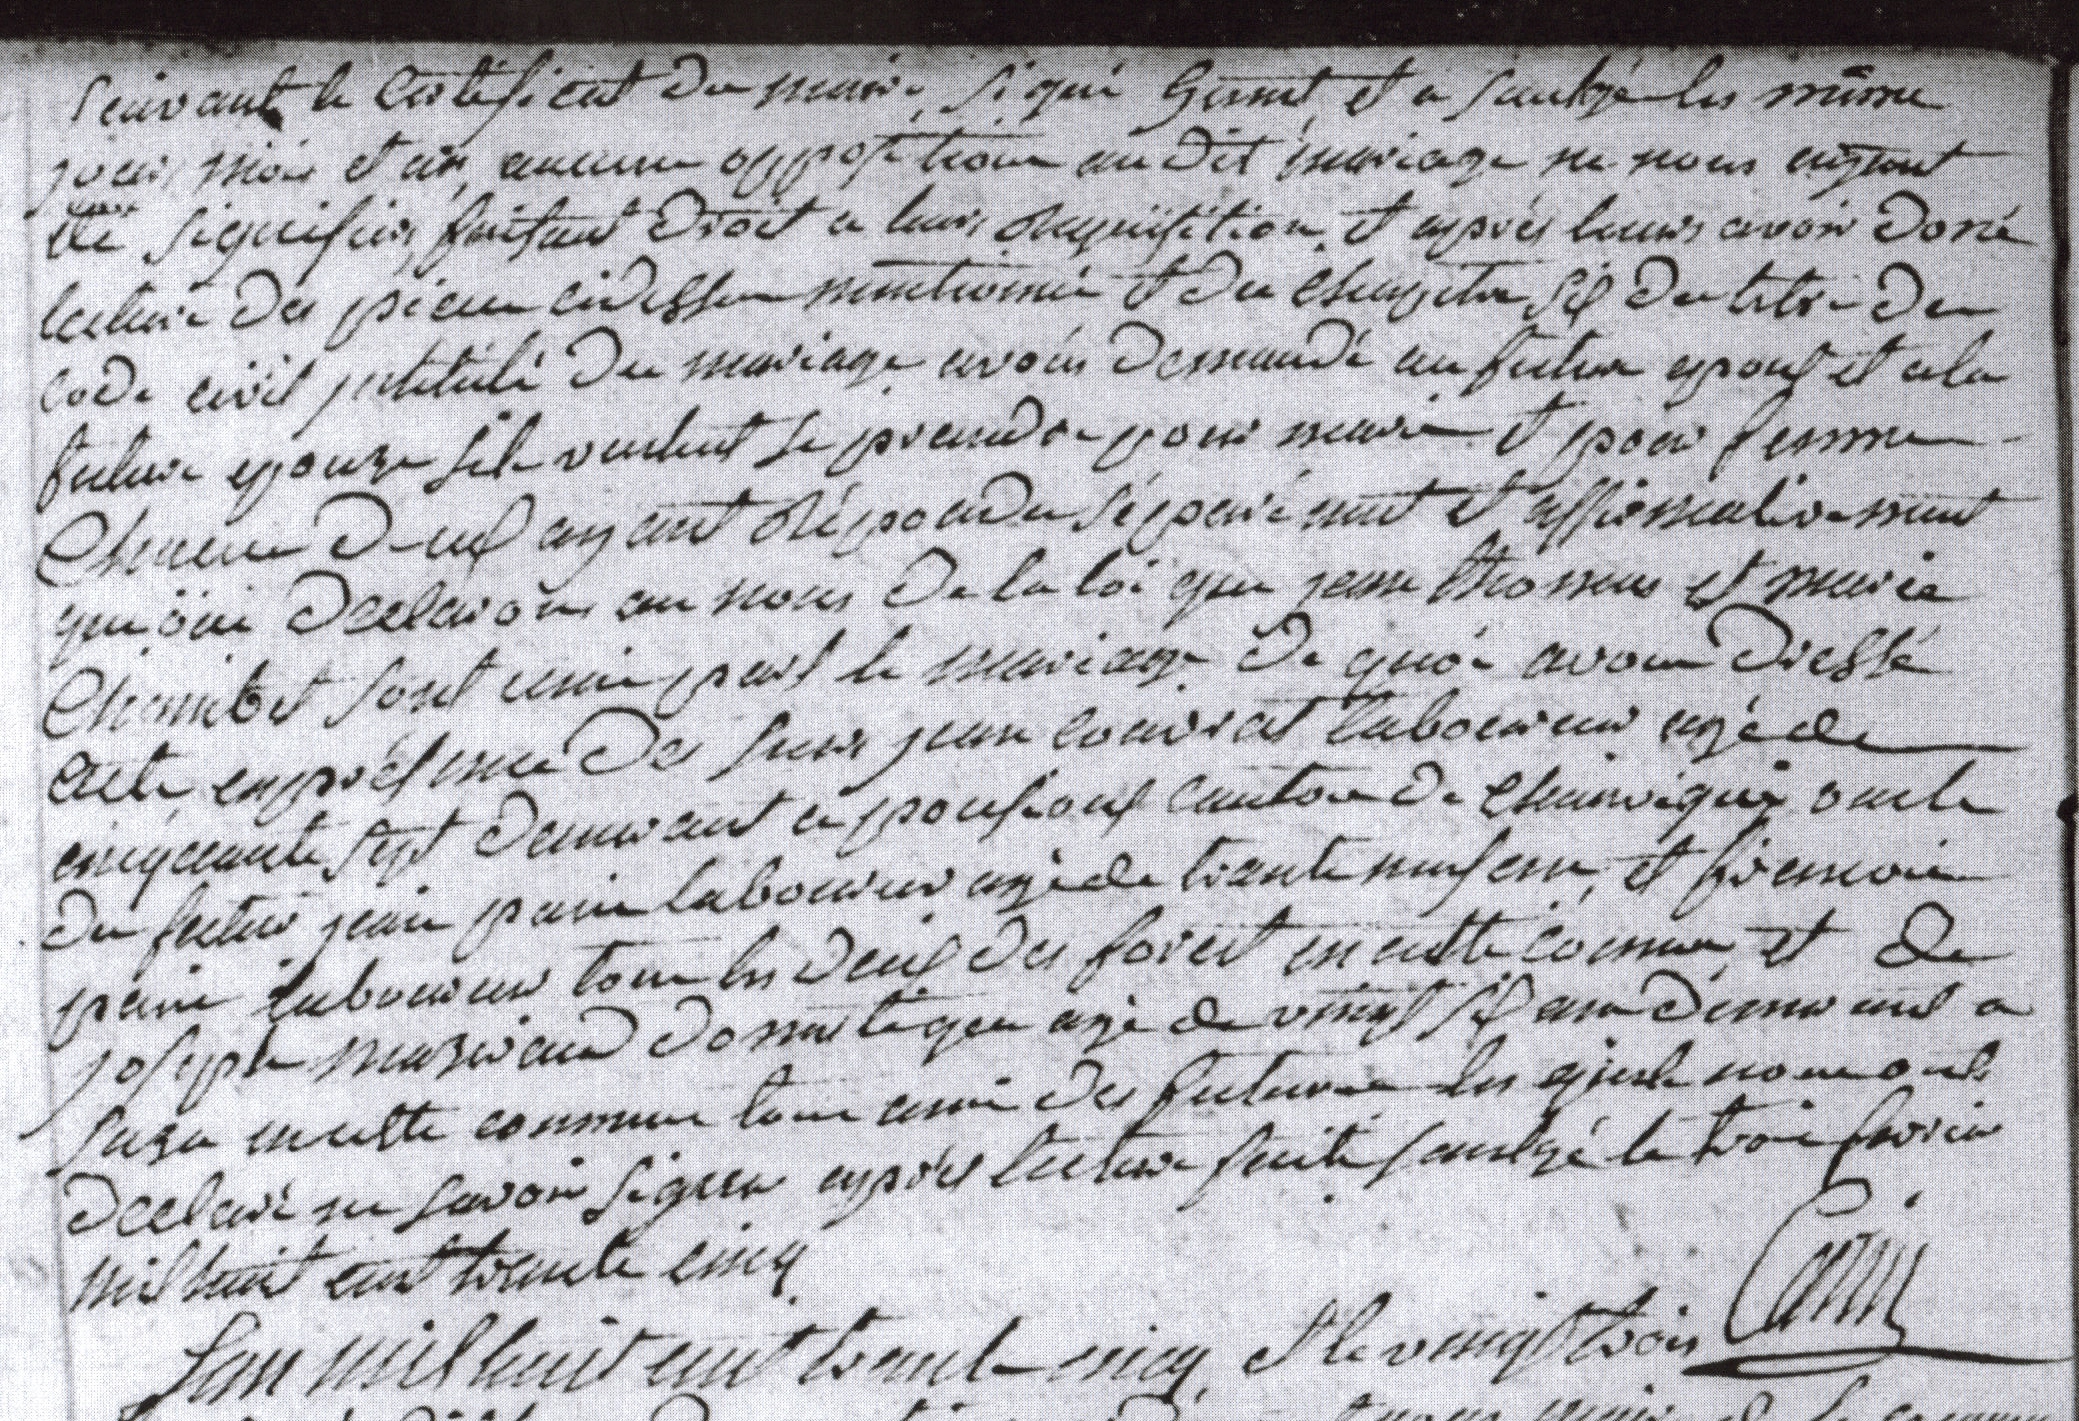 suivant le certificat du maire, signé et a saulzé les même
jour, mois et an, aucune oppopsition au dit mariage ne nous ayant
été signifier, faisant droit a leurs requisition, et après leurs avoir doné
lecture des pieces cidessus mentionné et du chapitre six du titre du
code civil intitulé du mariage avons demandé au futur epoux et a la
future epouze sils veulent se prendre pour mari et pour femme
Chacun deux ayant répondu séparément et affirmativement
que oui declarons au nous de la loi que jean thomas et marie
Chambet sont unie part le mariage de quoi avons dressé
acte en présence des sieurs jean couvrat laboureur agé de
cinquante sept demurant a canton de oncle
du futur jean parie laboureur agé de trante neuf ans, et francois
parie laboureur tous les deux des foret en cette comune, et de
joseph domestique agé de vingt six ans demurant a
en cette commune tous amie des futures les quels nous onts
declaré ne savoir signer après lecture faite saulzé le trois fevrier
mil huit cent trante cinq
Lan mil huit cent trante cinq et le vingt trois